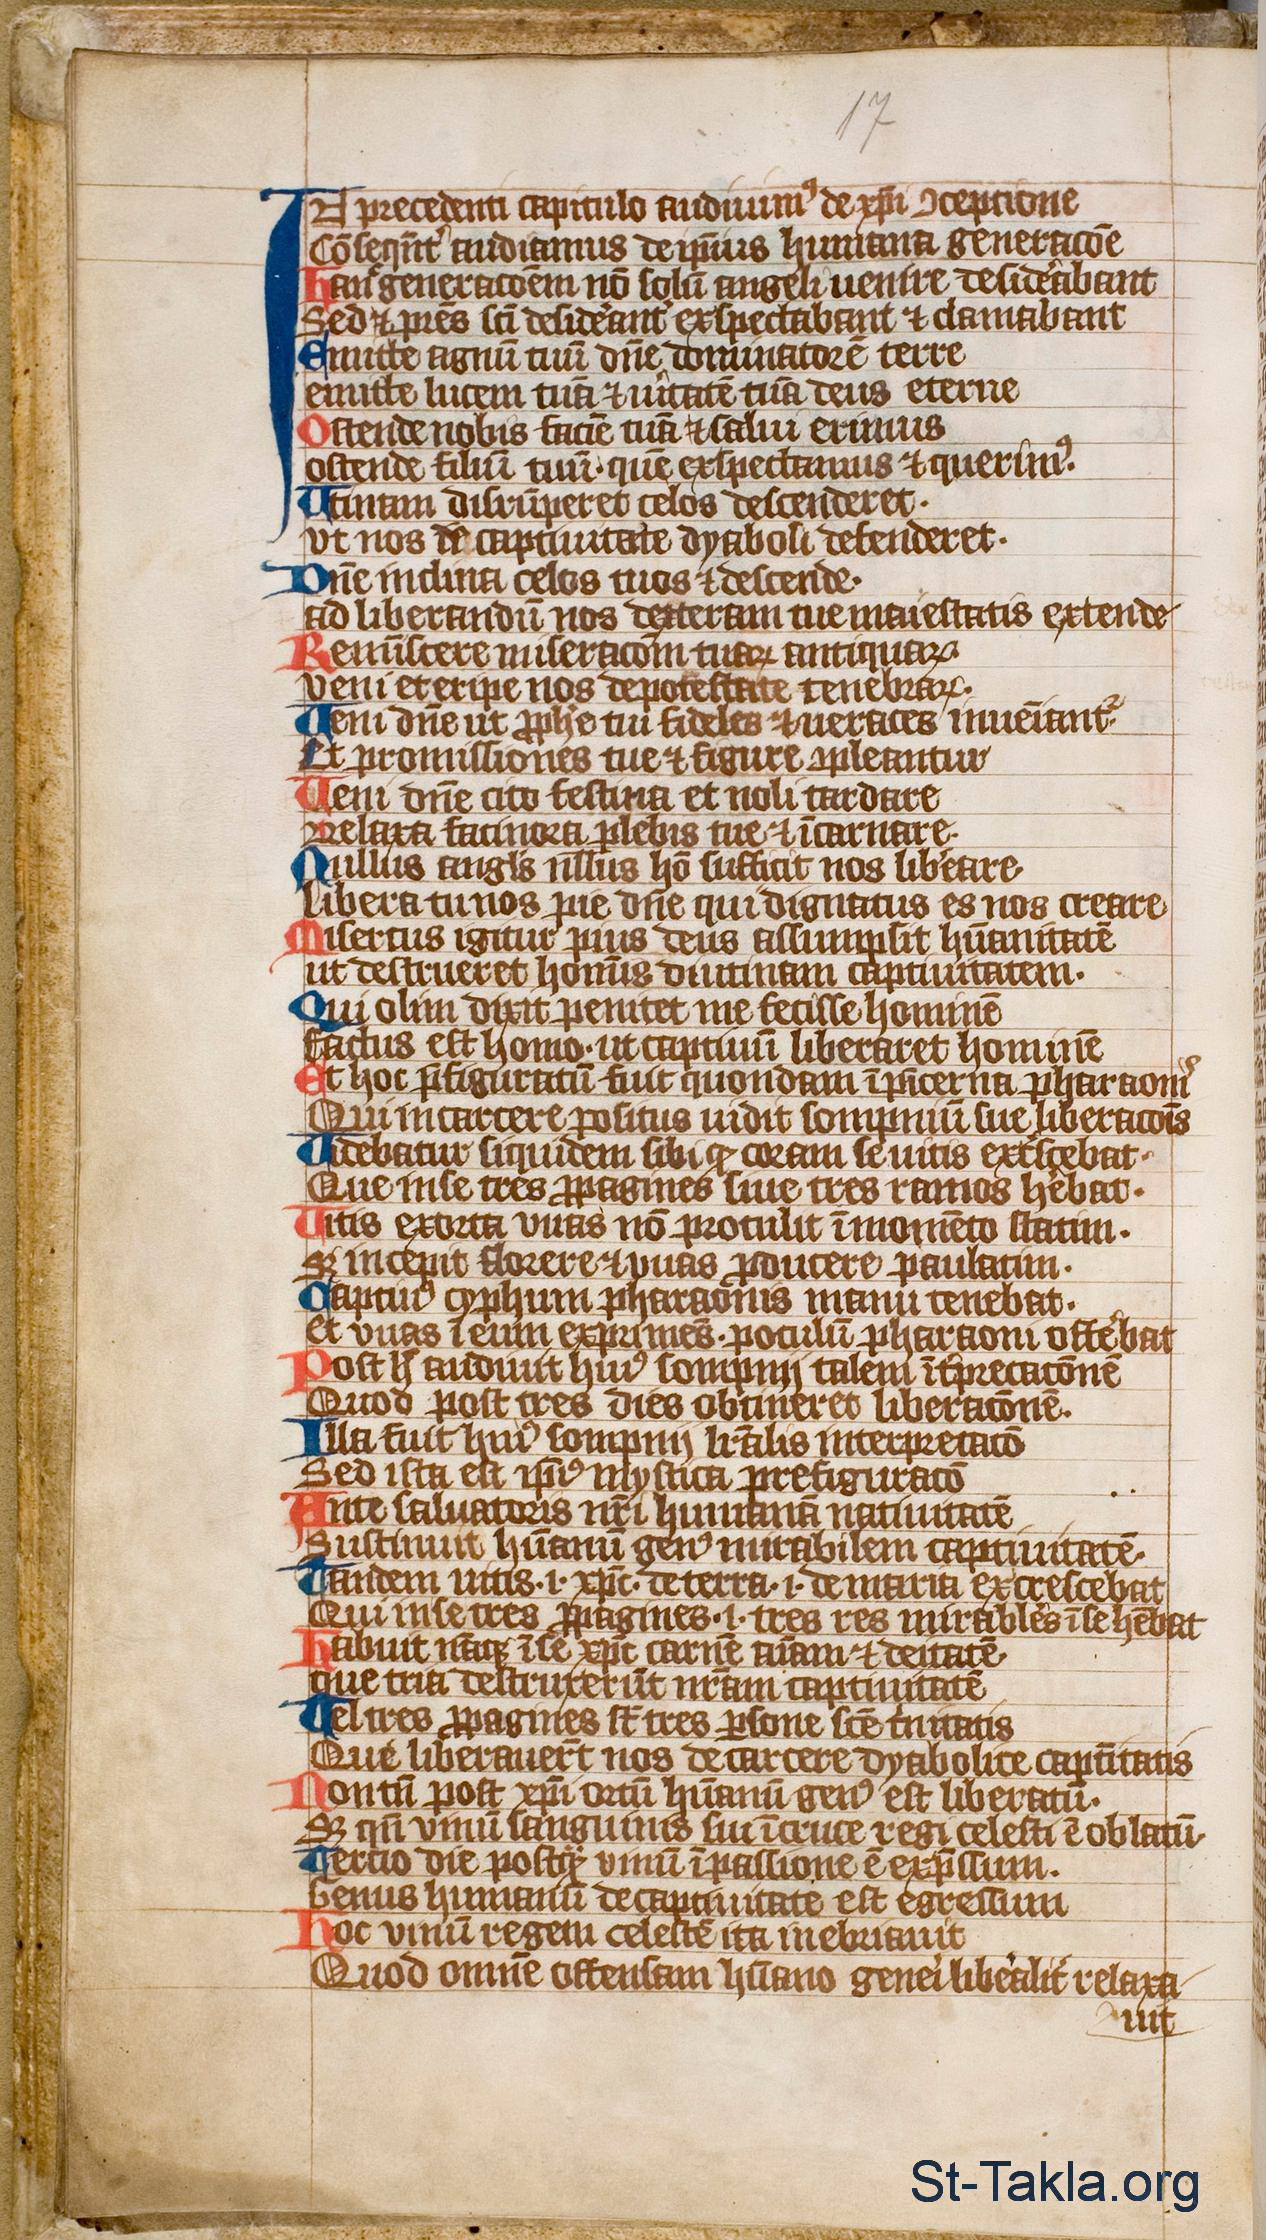 17
In precedenti capitulo audiuimꝰ de xp̄i ꝯceptione
Cōseqn̄t᷑ audiamus de ip̄ius humana generacōe
Hanc generacōem nō solū angeli uenire desid̓abant
Sed ⁊ pr̄es sc̄i desid̓ant᷑ exspectabant ⁊ clamabant
Emitte agnū tuū dn̄e dominatorē terre
emitte lucem tuā ⁊ u̓itatē tuā deus eterne
Ostende nobis faciē tuā ⁊ salui erimus
ostende filiū tuū· quē exspectamus ⁊ querimꝰ.
Utinam disrūperet celos descenderet·
vt nos de captiuitate dyaboli defenderet·
Dn̄e inclina celos tuos ⁊ descende·
ad liberandū nos dexteram tue maiestatis extende
Remīscere miseracōm tuaꝝ antiquaꝝ
veni et eripe nos de potestate tenebraꝝ·
Veni dn̄e ut ꝓph̄e tui fideles ⁊ ueraces inueīant᷑
Et promissiones tue ⁊ figure ꝯpleantur
Veni dn̄e cito festina et noli tardare
Relaxa facinora plebis tue ⁊ īcarnare·
Nullus angl̄s nllus hō sufficit nos lib̓are
Libera tu nos pie dn̄e qui dignatus es nos creare
Misertus igitur pius deus assumpsit hūanitatē
ut destrueret homīs diutinam captiuitatem·
Qui olim dixit penitet me fecisse hominē
factus est homo· ut captiuū liberaret hominē
Et hoc p̄figuratū fuit quondam ī pīcerna pharaonis
Qui in carcere positus uidit sompniū sue liberacōis
Videbatur siquidem sibi ꝙ coram se uitis excscebat·
Que in se tres ꝓpagines siue tres ramos hēbat·
Vitis exorta vuas nō protulit ī momēto statim·
Sꝫ incepit florere ⁊ vuas ꝓducere paulatim·
Captiuꝰ cyphum pharaonis manu tenebat·
et vuas ī eum exprimēs· poculū pharaoni offe̓bat
Post h̄ audiuit huiꝰ sompnij talem īt̓pretacōnē
Quod post tres dies obtineret liberacōnē·
Illa fuit huiꝰ sompnij lr̄alis interpretacō
Sed ista est ip̄iꝰ mystica prefiguracō
Ante saluatoris nr̄i humanā natiuitatē
Sustinuit hūanū genꝰ mirabilem captiuitatē·
Tandem uitis·i· xp̄c· de terra·i· de maria excrescebat
Qui in se tres ꝓpagines·i· tres res mirabl̓es ī se hēbat
Habuit nāqꝫ ī se xp̄c carnē aīam ⁊ deitatē
que tria destruxerūt nr̄am captiuitatē
Vel tres ꝓpagines st̄ tres ꝑsone sc̄e tīnitatis
Que liberauer̄t nos de carcere dyabolice captītatis
Non tn̄ post xp̄i ortū hūanū genꝰ est liberatū·
Sꝫ qn̄ vinū sanguinis sui ī cruce regi celesti ē oblatū·
Tercio die postqꝫ vinū ī passione ē exp̄ssum·
Genus humanū de captiuitate est egressum
Hoc vinū regem celestē ita inebriauit
Quod omnē offensam hūano gene̓i lib̓alit᷑ relaxa
uit
St-Takla.org